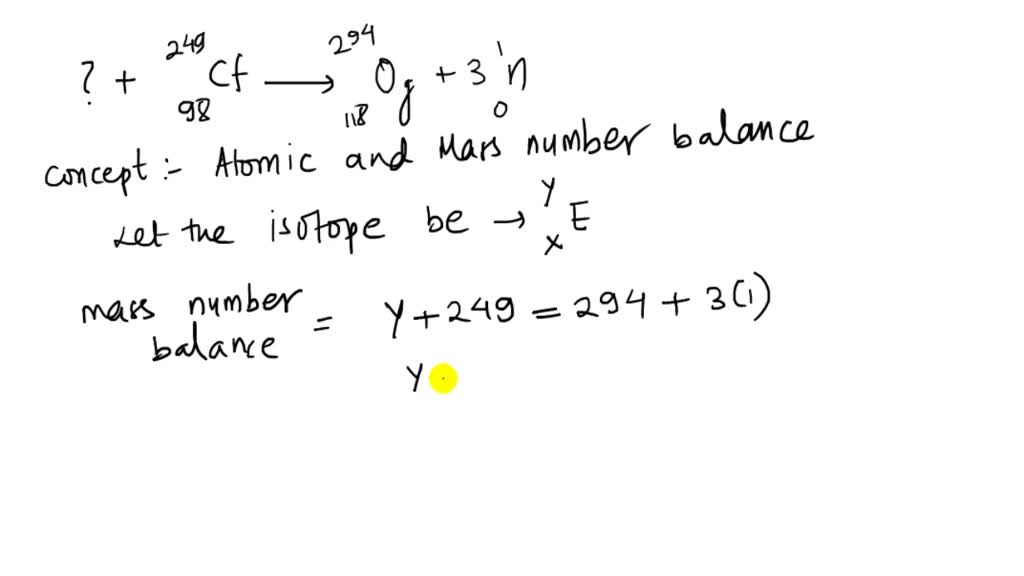 ? + ²⁴⁹₉₈Cf ⟶ ²⁹⁴₁₁₈Og + 3 ¹₀n
concept :- Atomic and Mass number balance
Let the isotope be → ʸₓE
mass number balance = y + 249 = 294 + 3(1)
y